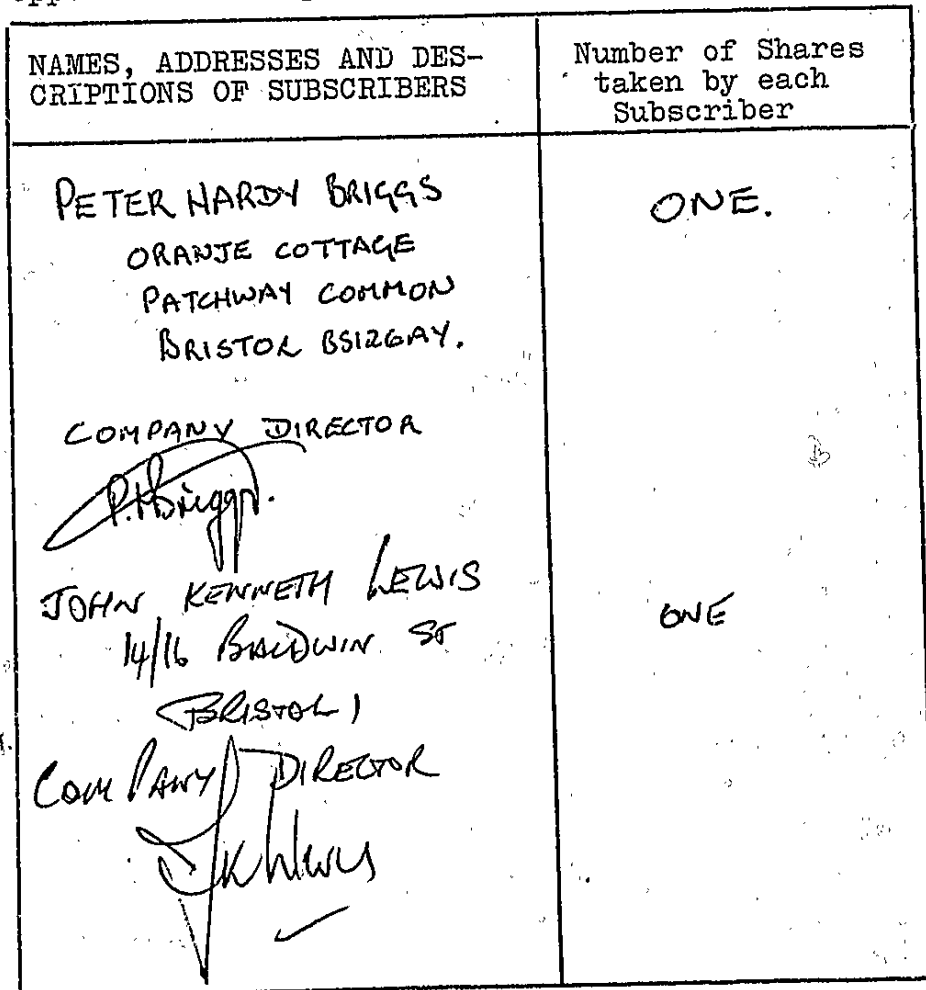 NAMES, ADDRESSES AND DES-
CRIPTIONS OF SUBSCRIBERS
Number of Shares
taken by each
Subscriber
PETER HARDY BRIGGS
ONE.
ORANJE COTTAGE
PATCHWAY COMMON
BRISTOL BS12 6AY.
COMPANY DIRECTOR
P.H.Briggs.
JOHN KENNETH LEWIS
ONE
14/16 BALDWIN ST
BRISTOL 1
COMPANY DIRECTOR
J K Lewis